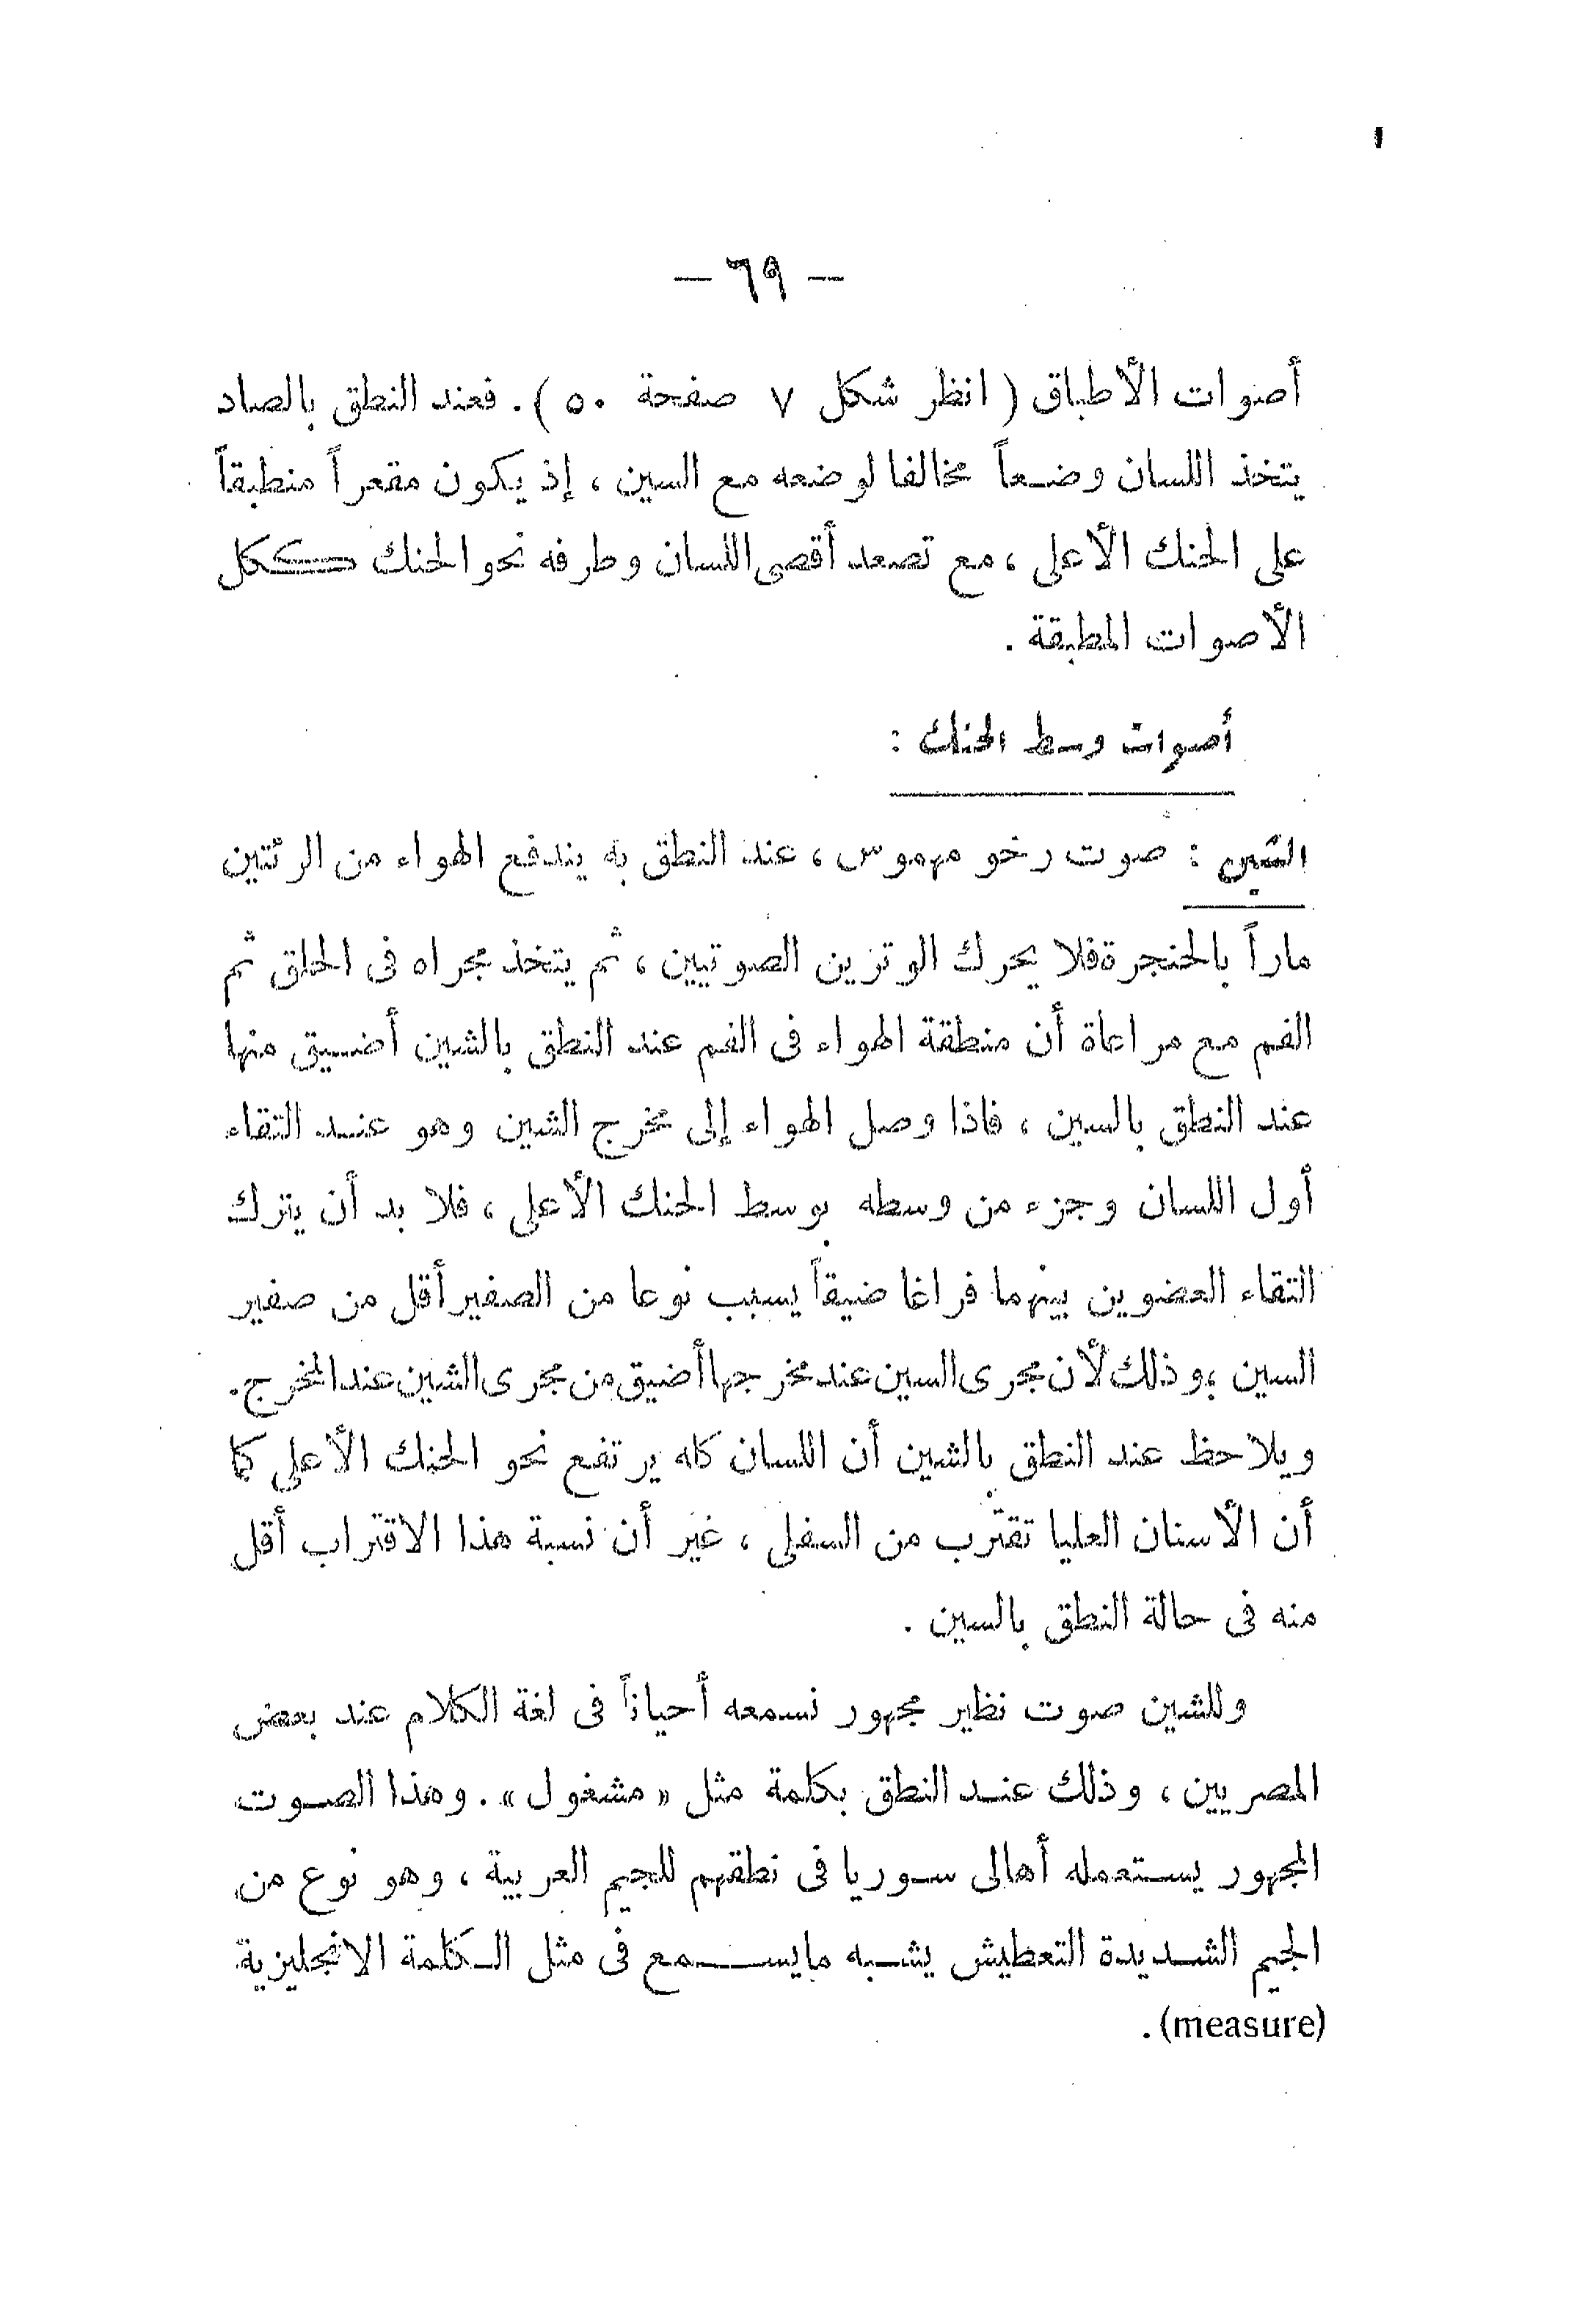 — ٦٩ —
أصوات الأطباق ( انظر شكل ٧ صفحة ٥٠ ) . فعند النطق بالصاد
يتخذ اللسان وضعاً مخالفا لوضعه مع السين ، إذ يكون مقعراً منطبقاً
على الحنك الأعلى ، مع تصعد أقصى اللسان وطرفه نحو الحنك ككل
الأصوات المطبقة .
أصوات وسط الحنك :
الشين : صوت رخو مهموس ، عند النطق به يندفع الهواء من الرئتين
ماراً بالحنجرة فلا يحرك الوترين الصوتيين ، ثم يتخذ مجراه فى الحلق ثم
الفم مع مراعاة أن منطقة الهواء فى الفم عند النطق بالشين أضيق منها
عند النطق بالسين ، فاذا وصل الهواء إلى مخرج الشين وهو عند التقاء
أول اللسان وجزء من وسطه بوسط الحنك الأعلى ، فلا بد أن يترك
التقاء العضوين بينهما فراغا ضيقاً يسبب نوعا من الصفير أقل من صفير
السين ، وذلك لأن مجرى السين عند مخرجها أضيق من مجرى الشين عند المخرج .
ويلاحظ عند النطق بالشين أن اللسان كله يرتفع نحو الحنك الأعلى كما
أن الأسنان العليا تقترب من السفلى ، غير أن نسبة هذا الاقتراب أقل
منه فى حالة النطق بالسين .
وللشين صوت نظير مجهور نسمعه أحياناً فى لغة الكلام عند بعض
المصريين ، وذلك عند النطق بكلمة مثل « مشغول » . وهذا الصوت
المجهور يستعمله أهالى سوريا فى نطقهم للجيم العربية ، وهو نوع من
الجيم الشديدة التعطيش يشبه مايسمع فى مثل الكلمة الانجليزية
(measure) .